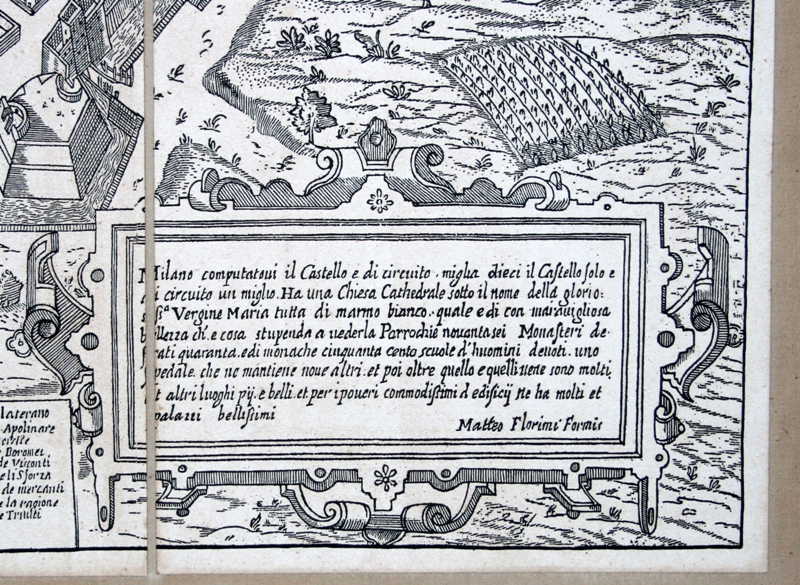 Milano computatoui il Castello e di circuito . miglia dieci il Castello solo e
di circuito un miglio. Ha una Chiesa Cathedrale sotto il nome della glorio:
Vergine Maria tutta di marmo bianco. quale e di con marauigliosa
bellezza e cosa stupenda a uederla Parrochie nouantasei Monasteri de
frati quaranta. e di monache cinquanta cento scuole d'huomini deuoti. uno
che ne mantiene noue altri. et poi oltre quello e quelli sono molti
et altri luoghi pij. e belli. et per i poueri commodissimi d edificij ne ha molti et
palazzi bellissimi
Matteo Florimi Formis
laterano
Apolinare
Boromei
de Visconti
eli Sforza
de mercanti
e la ragione
e Triulti